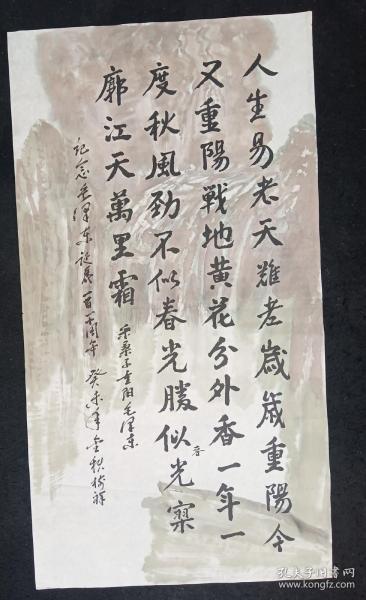 人生易老天難老歲歲重陽今
又重陽戰地黄花分外香一年一
度秋風勁不似春光勝似光寥
春
廓江天萬里霜
采桑子重阳毛泽东
纪念毛泽东诞辰一百十周年 癸未年金秋
孔夫子旧书网
www.kongfz.com